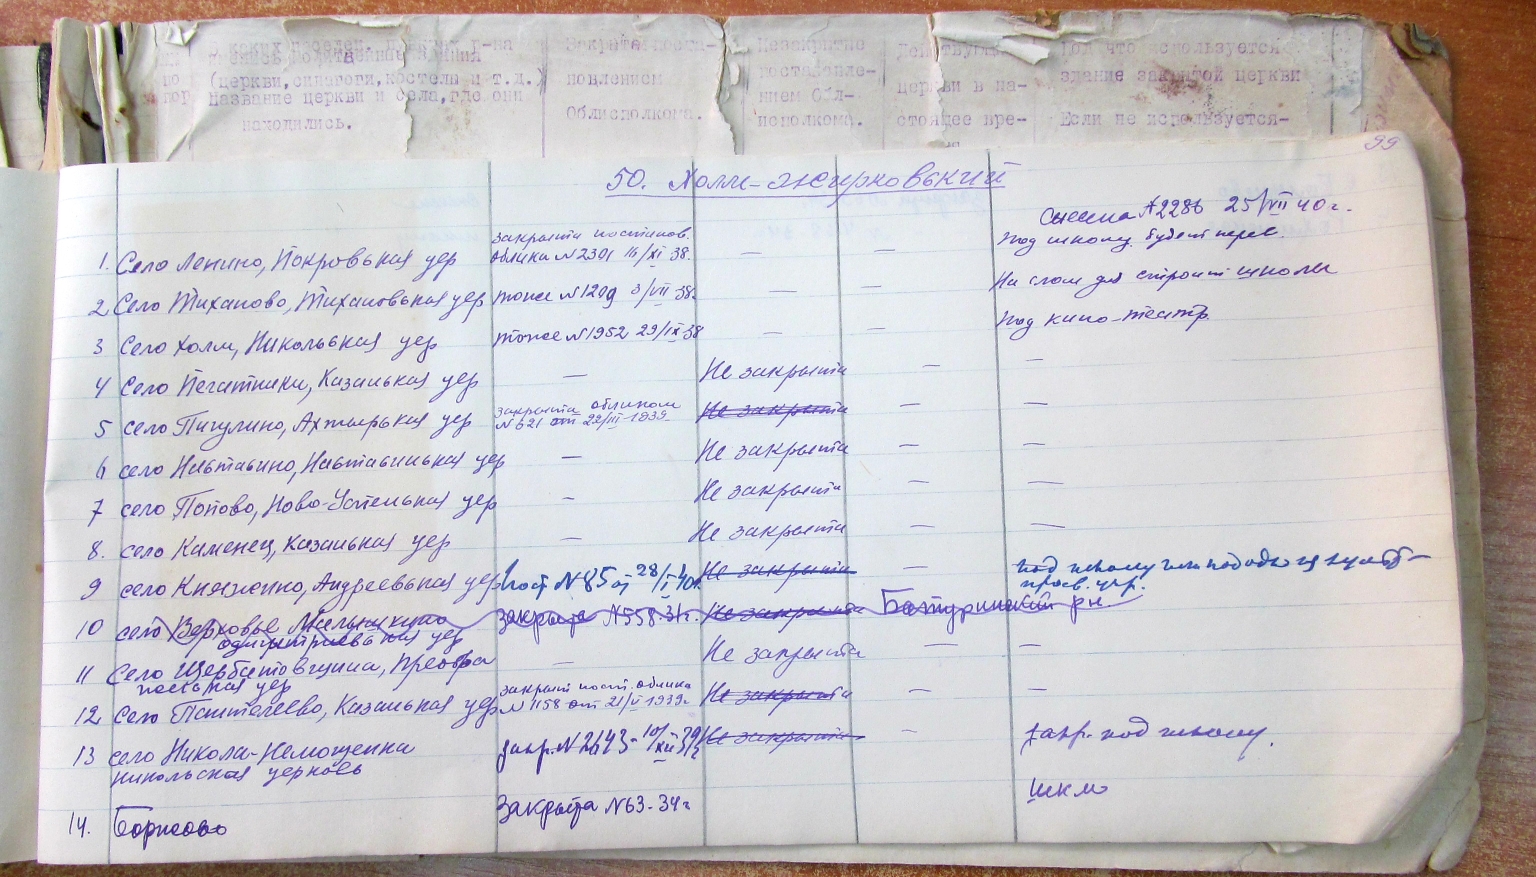 В каких населен. пунктах р-на
имелись молитвенные здания
(церкви, синагоги, костелы и т.д.)
Название церкви и села, где они
находились.
Закрыте поста-
новлением
Облисполкома.
Незакрытые
постановле-
нием Обл-
исполкома.
Действующие
церкви в на-
стоящее вре-
Под что используется
здание закрытой церкви
Если не используется-
99
50. Холм-Жирковский
Снесена №2286 25/VII 40 г.
1. Село Ленино, Покровская цер закрыта постанов. облика №2301 16/XI 38. — — Под школу. будет перев.
2. Село Тиханово, Тихановская цер тоже №1209 3/VII 38. — — На слом для строит школы
3 Село Холм, Никольская цер тоже №1952 29/IX 38 — — Под кино-театр.
4 Село Печатники, Казанская цер — Не закрыта — —
5 село Пигулино, Ахтырская цер закрыта обликом №621 от 22/III-1939 Не закрыта — —
6 село Нестацино, цер — Не закрыта — —
7 село Попово, Ново-Успенская цер — Не закрыта — —
8. село Каменец, Казанская цер — Не закрыта — —
9 село Княжино, Андреевская цер Пост №85 от 28/I 40г. Не закрыта — под школу или
просв. учр.
10 село Верховье закрыта №558-34г. Не закрыта Батуринский рн
одигитриевская цер
11 Село Щербатовщина, Преобра — Не закрыта — —
женская цер
12 Село Пантелеево, Казанская цер закрыт пост. облика №1158 от 21/V-1939г. Не закрыта — —
13 село Никола-Немощенка закр. №2643-10/XII 39г Не закрыта — закр. под школу.
никольская церковь
14. Борисово Закрыта №63-34г шкм